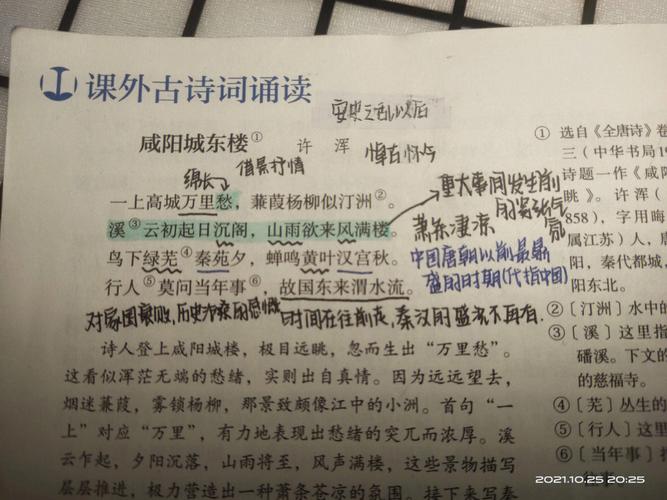 课外古诗词诵读
安史之乱以后
咸阳城东楼①
许浑
悼古怀今
绵长
借景抒情
一上高城万里愁，蒹葭杨柳似汀洲②。
溪③云初起日沉阁，山雨欲来风满楼。
鸟下绿芜④秦苑夕，蝉鸣黄叶汉宫秋。
行人⑤莫问当年事⑥，故国东来渭水流。
重大事间发生前
的紧张气
氛
萧条凄凉
中国唐朝以前最最
盛的时期(代指中国)
对家国衰败，历史沧桑的感慨
时间在往前走，秦汉的盛况不再有.
诗人登上咸阳城楼，极目远眺，忽而生出“万里愁”。
这看似浑茫无端的愁绪，实则出自真情。因为远远望去，
烟迷蒹葭，雾锁杨柳，那景致颇像江中的小洲。首句“一
上”对应“万里”，有力地表现出愁绪的突兀而浓厚。溪
云乍起，夕阳沉落，山雨将至，风声满楼，这些景物描写
层层推进，极力营造出一种萧条苍凉的氛围。接下来写秦
① 选自《全唐诗》卷
三（中华书局19
诗题一作《咸阳
眺》。许浑（
858），字用晦
属江苏）人，唐
阳，秦代都城，
阳东北。
②〔汀洲〕水中的
③〔溪〕这里指
磻溪。下文的
的慈福寺。
④〔芜〕丛生的
⑤〔行人〕这里
⑥〔当年事〕指
2021.10.25 20:25